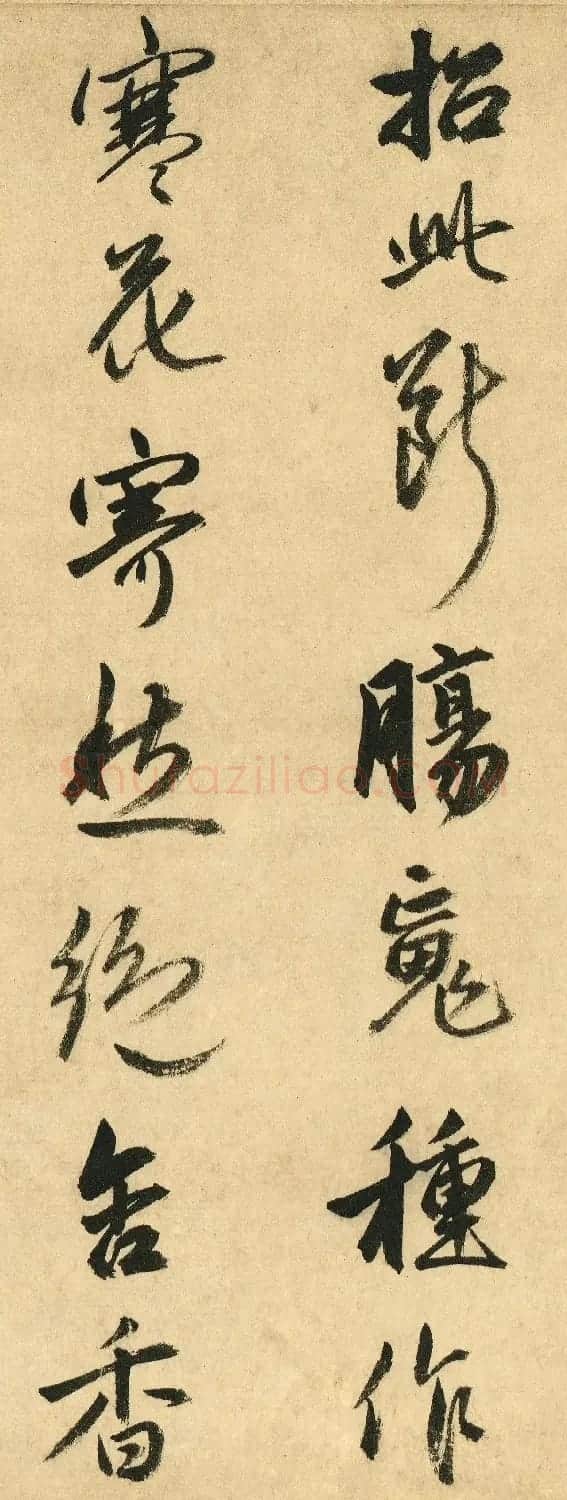 招此斷腸魂種作
寒花寄愁絕含香
shufaziliao.com